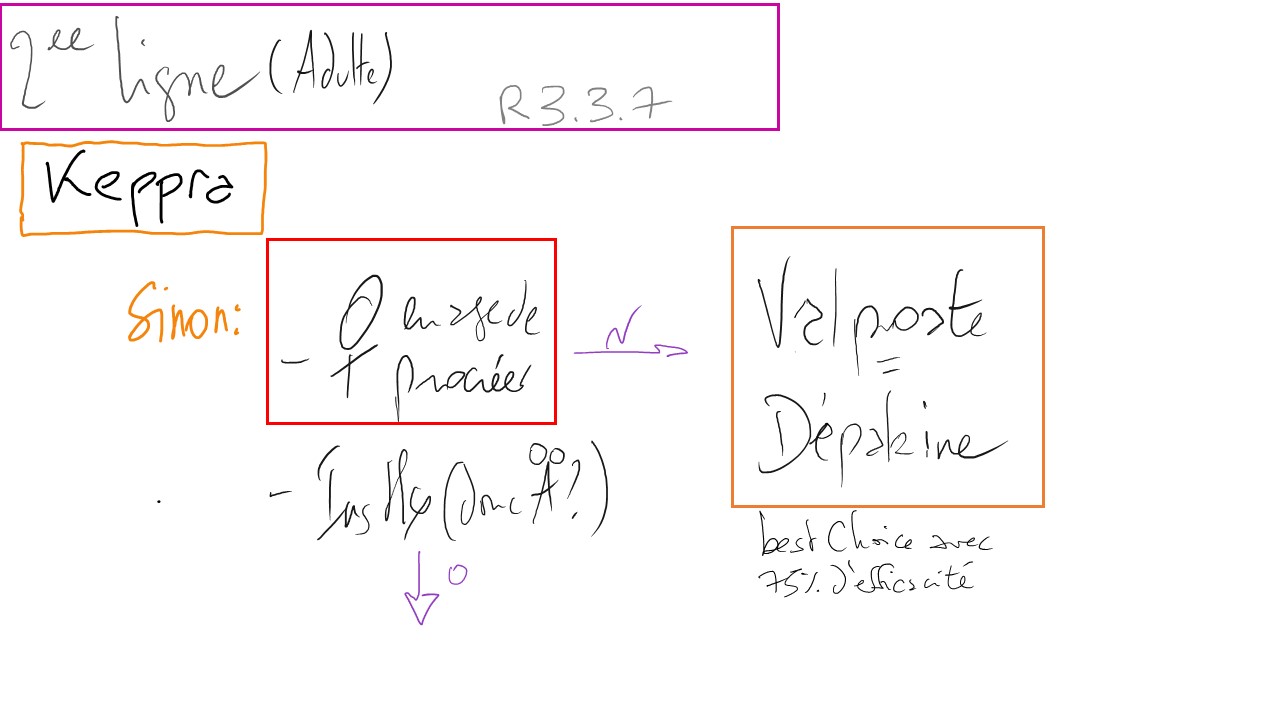 2ee ligne (Adulte)
R3.3.7
Keppra
Sinon:
- ♀ en age de
procréer
N
Valproate
=
Dépakine
- Ins Hép (Donc ?)
best Choice avec
75% d'efficacité
O